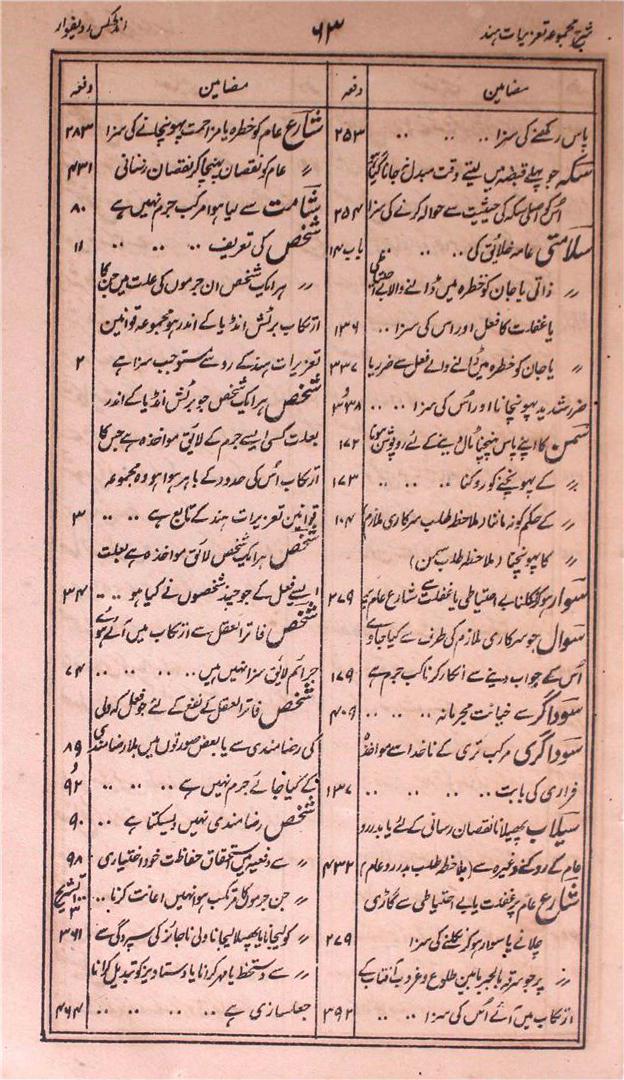 شرح مجموعہ تعزیرات ہند
۶۳
انڈکس ردیفوار
مضامین
دفعہ
پاس رکھنے کی سزا .. .. .. ۲۵۳
سکہ جو پہلے قبضہ میں لیتے وقت مبدل نہ جانا گیا ہو
اُس کو اصلی سکہ کی حیثیت سے حوالہ کرنے کی سزا ۲۵۴
سلامتی عامہ خلائق کی .. .. .. باب ۱۴
〃 ذاتی یا جان کو خطرہ میں ڈالنے والا بے احتیاطی
یا غفلت کا فعل اور اس کی سزا .. ۱۳۶
〃 یا جان کو خطرہ میں ڈالنے والے فعل سے ضرر یا ۳۳۷ و
ضرر شدید پہونچانا اور اُس کی سزا .. .. ۳۳۸
سمن کا اپنے پاس پہنچنا ٹال دینے کے لئے روپوش ہونا ۱۷۲
〃 کے پہونچنے کو روکنا .. .. .. ۱۷۳
〃 کے حکم کو نہ ماننا (ملاحظہ طلب سرکاری ملازم) ۱۰۴
〃 کا پہونچنا (ملاحظہ طلب سمن)
سوار ہو کر نکلنا بے احتیاطی یا غفلت سے شارع عام پر ۲۷۹
سوال جو سرکاری ملازم کی طرف سے کیا جاوے
اُس کے جواب دینے سے انکار کرنا کب جرم ہے ۱۷۹
سوداگر سے خیانت مجرمانہ .. .. .. ۴۰۹
سوداگری مرکب تری کے ناخدا سے مواخذہ
فراری کی بابت .. .. .. .. ۱۳۷
سیلاب پھیلانا نقصان رسانی کے لئے یا بدررو
عام کے روکنے وغیرہ سے (ملاحظہ طلب بدررو عام) ۴۳۲
شارع عام پر غفلت یا بے احتیاطی سے گاڑی
چلانے یا سوار ہو کر نکلنے کی سزا ۲۷۹
〃 پر جو سرقہ بالجبر مابین طلوع و غروب آفتاب کے
ارتکاب میں آئے اُس کی سزا .. .. ۳۹۲
مضامین
دفعہ
شارع عام کو خطرہ یا مزاحمت پہونچانے کی سزا ۲۸۳
〃 عام کو نقصان پہنچا کر نقصان رسانی ۴۳۱
شامت سے کیا ہوا مرکب جرم نہیں ہے ۸۰
شخص کی تعریف .. .. .. .. ۱۱
〃 ہر ایک شخص ان جرموں کی علت میں جن کا
ارتکاب برٹش انڈیا کے اندر ہو مجموعہ قوانین
تعزیرات ہند کے رو سے مستوجب سزا ہے ۲
شخص ہر ایک شخص جو برٹش انڈیا کے اندر
بعلت کسی ایسے جرم کے لایق مواخذہ ہے جس کا
ارتکاب اُس کی حدود کے باہر ہوا ہو وہ مجموعہ
قوانین تعزیرات ہند کے تابع ہے .. .. ۳
شخص ہر ایک شخص لائق مواخذہ ہے بعلت
ایسے فعل کے جو چند شخصوں نے کیا ہو .. .. ۳۴
شخص فاتر العقل سے ارتکاب میں آئے ہوئے
جرائم لایق سزا نہیں ہیں .. .. .. ۷۴
شخص فاتر العقل کے نفع کے لئے جو فعل کہ ولی
کی رضامندی سے یا بعض صورتوں میں بلا رضامندی ۸۹ و
کے کیا جائے جرم نہیں ہے .. .. .. ۹۲
شخص رضامندی نہیں دیسکتا ہے .. ۹۰
〃 سے دفعیہ میں استحقاق حفاظت خود اختیاری ۹۸
〃 جن جرموں کا مرتکب ہو انہیں اعانت کرنا .. تشریح ۳
〃 کو لیجانا یا پھسلا لیجانا ولی ناجائز کی سپردگی سے ۳۶۱
〃 سے دستخط یا مہر کرانا یا دستاویز کو تبدیل کرانا
جعلسازی ہے .. .. .. .. ۴۶۴